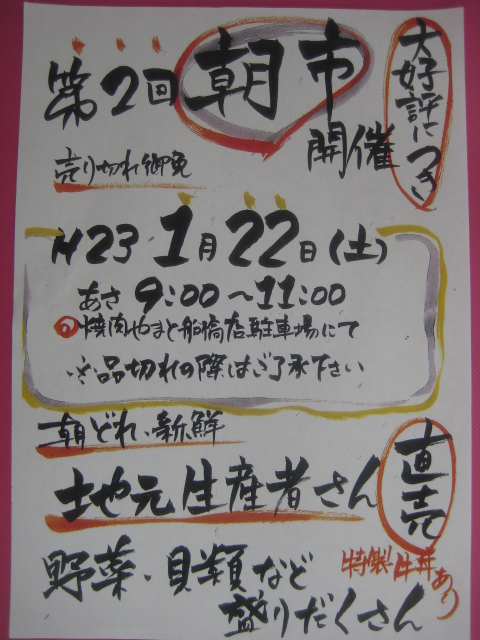 大好評につき
第2回 朝市
開催
売り切れ御免
H23 1月22日(土)
あさ 9:00〜11:00
焼肉やまと船橋店駐車場にて
※品切れの際はご了承下さい
朝どれ、新鮮
地元生産者さん
直売
野菜・貝類など
特製牛丼あり
盛りだくさん